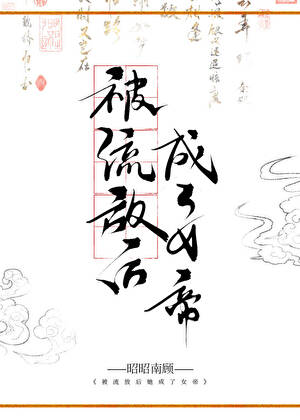 被流放后
成了女帝
——昭昭南顾——
《被流放后她成了女帝》